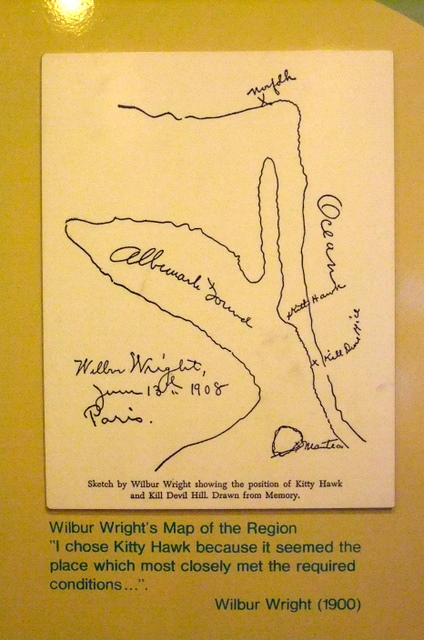 Norfolk
X
Ocean
Albemarle Sound
Kitty Hawk
x Kill Devil Hill
Wilbur Wright,
June 13th 1908
Paris.
Manteo
Sketch by Wilbur Wright showing the position of Kitty Hawk
and Kill Devil Hill. Drawn from Memory.
Wilbur Wright's Map of the Region
"I chose Kitty Hawk because it seemed the
place which most closely met the required
conditions...".
Wilbur Wright (1900)